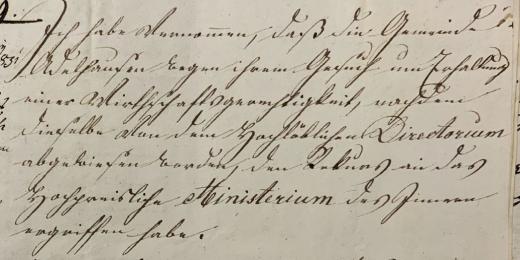 Ich habe Vernommen, daß die Gemeinde
Adelhausen wegen ihrem Gesuch um Erhaltung
einer Wirthschaftsgerechtigkeit, nachdem
dieselbe von dem Hochlöblichen Directorium
abgewiesen worden, den Rekurs an das
Hochpreisliche Ministerium des Innern
ergriffen habe.